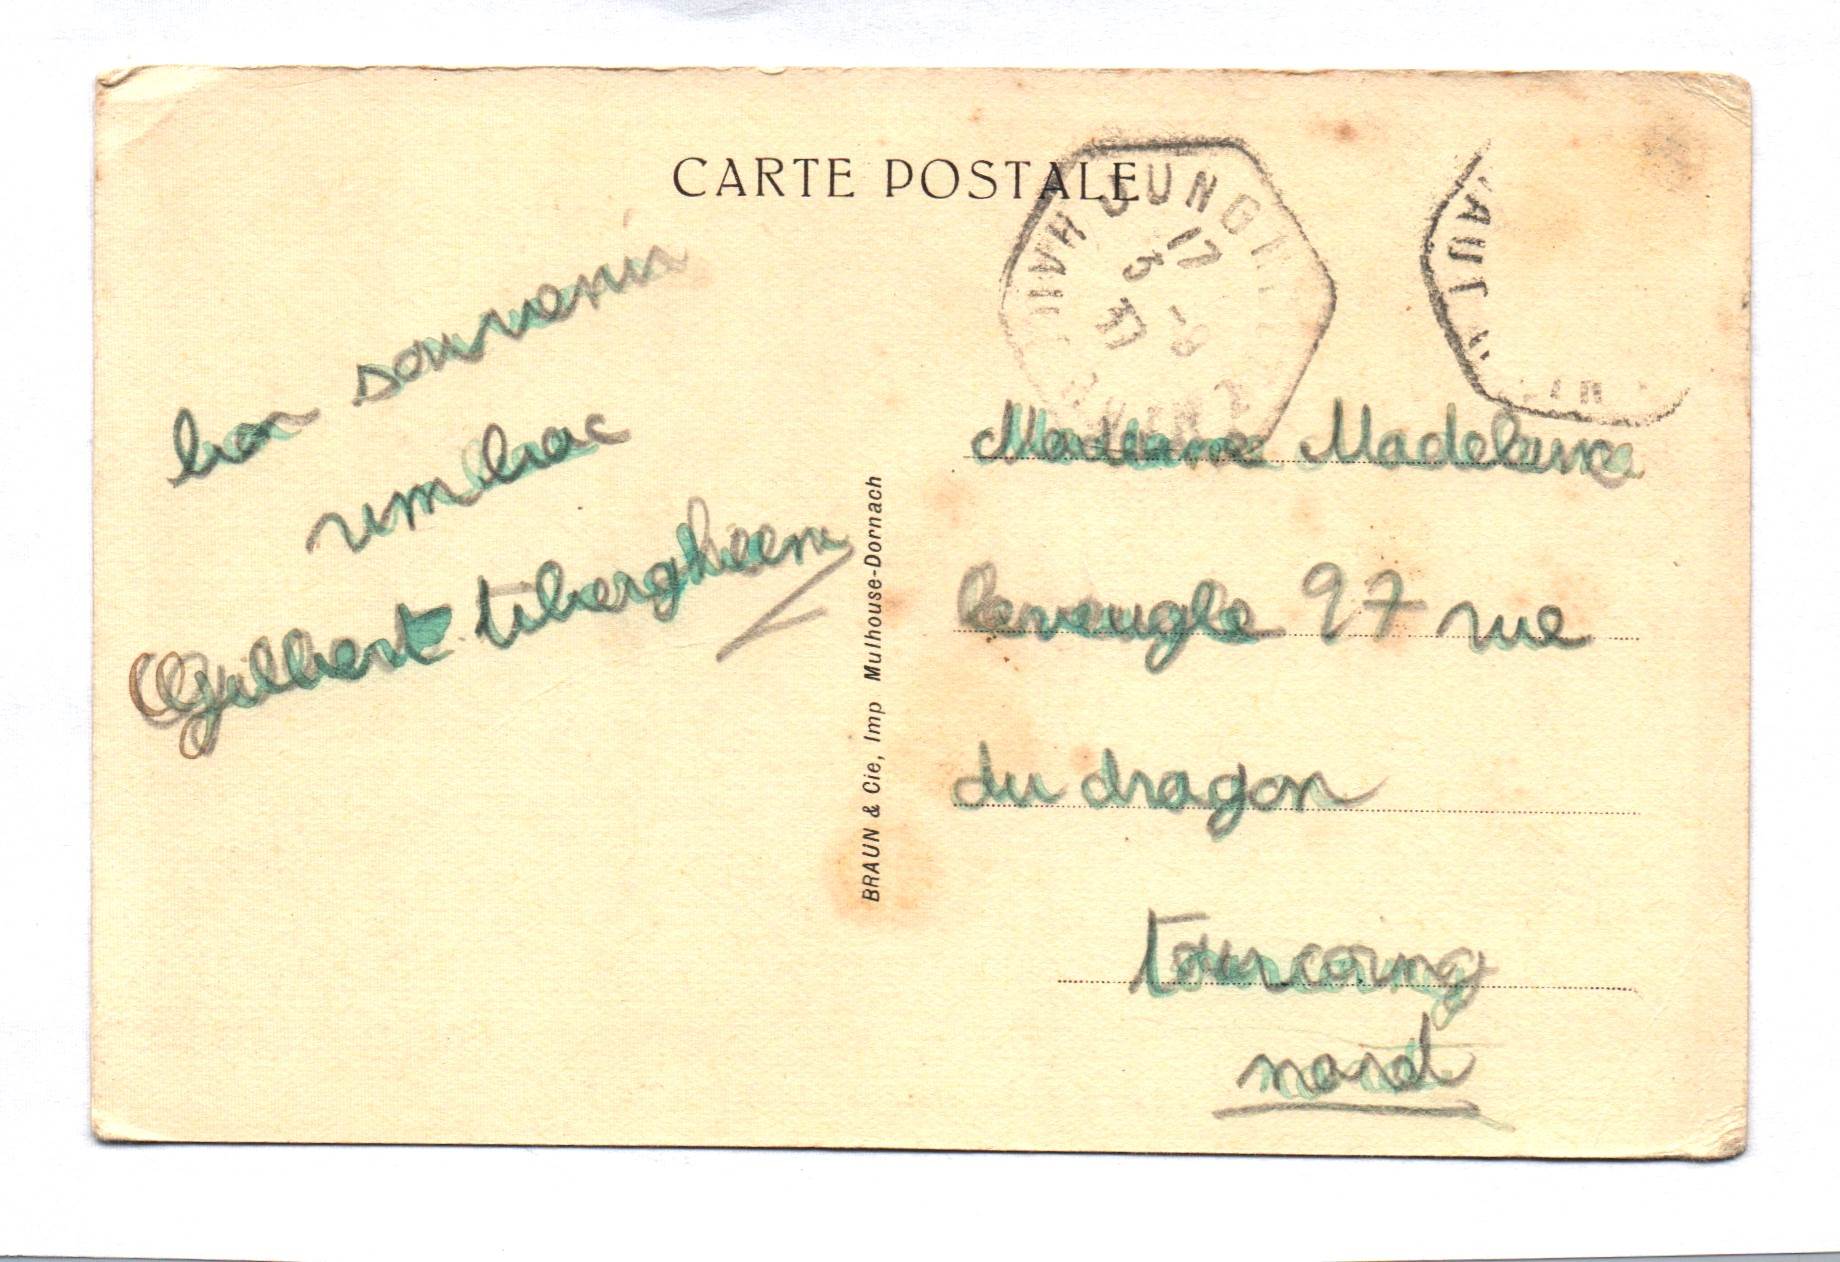 CARTE POSTALE
17
5 -8
37
bon souvenir
un bac
Gilbert tiberghien
BRAUN & Cie, Imp Mulhouse-Dornach
Madame Madeleine
leveugle 97 rue
du dragon
tourcoing
nord